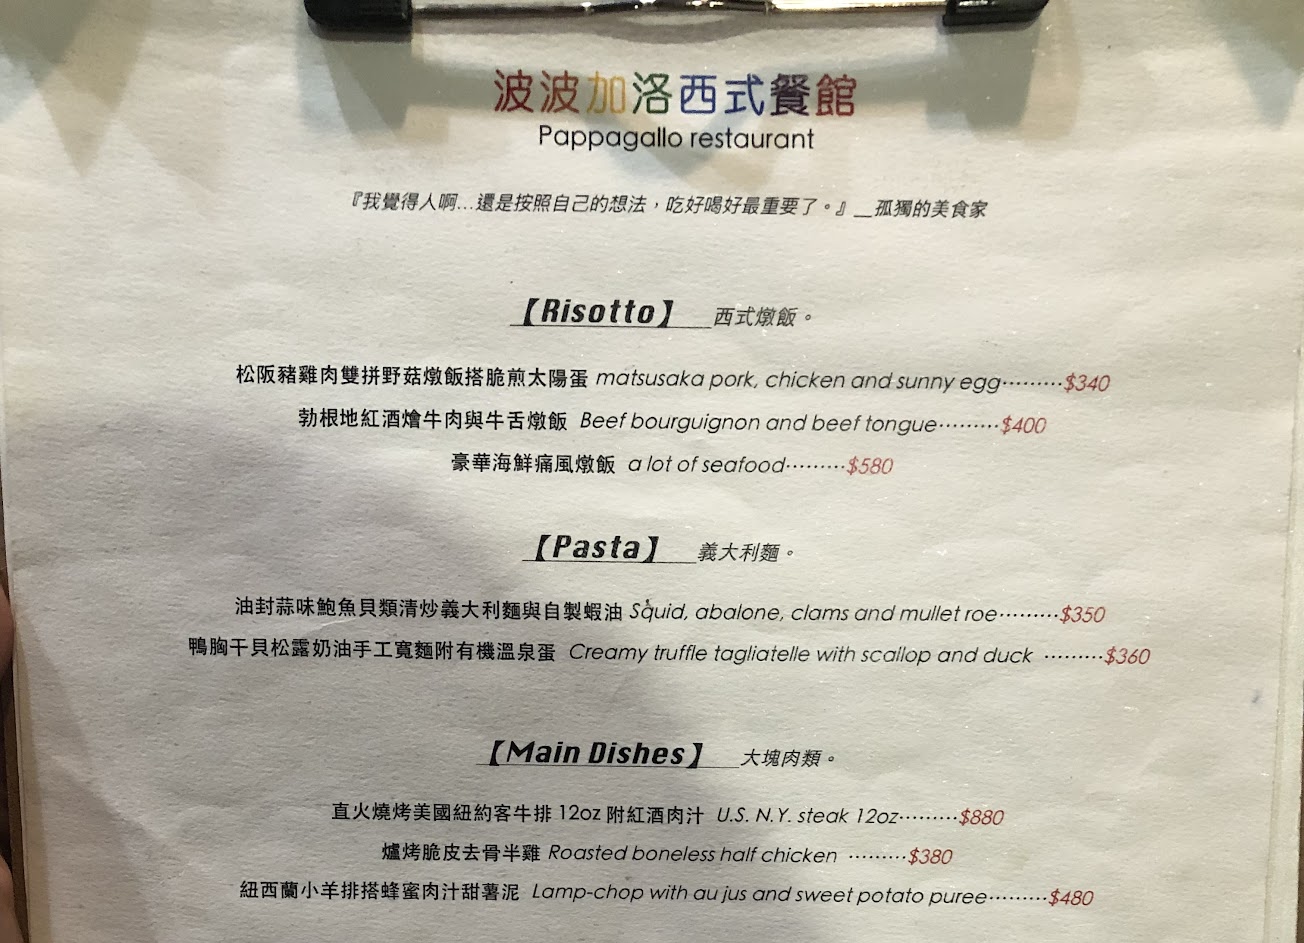 波波加洛西式餐館
Pappagallo restaurant
『我覺得人啊…還是按照自己的想法，吃好喝好最重要了。』__孤獨的美食家
【Risotto】__西式燉飯。
松阪豬雞肉雙拼野菇燉飯搭脆煎太陽蛋 matsusaka pork, chicken and sunny egg………$340
勃根地紅酒燴牛肉與牛舌燉飯 Beef bourguignon and beef tongue………$400
豪華海鮮痛風燉飯 a lot of seafood………$580
【Pasta】__義大利麵。
油封蒜味鮑魚貝類清炒義大利麵與自製蝦油 Squid, abalone, clams and mullet roe………$350
鴨胸干貝松露奶油手工寬麵附有機溫泉蛋 Creamy truffle tagliatelle with scallop and duck ………$360
【Main Dishes】__大塊肉類。
直火燒烤美國紐約客牛排 12oz 附紅酒肉汁 U.S. N.Y. steak 12oz………$880
爐烤脆皮去骨半雞 Roasted boneless half chicken ………$380
紐西蘭小羊排搭蜂蜜肉汁甜薯泥 Lamp-chop with au jus and sweet potato puree………$480